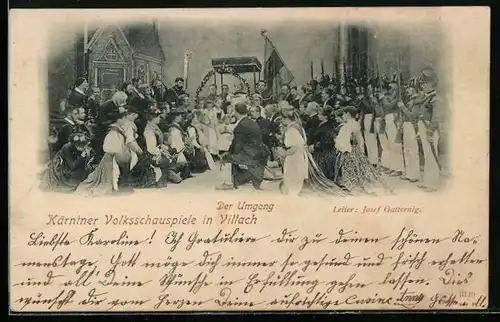 Der Umgang
Kärntner Volksschauspiele in Villach
Leiter: Josef Gatternig.
Liebste Karoline! Ich Gratulire dir zu deinem schönen Na-
menstage, Gott möge dich immer so gesund und frisch erhalten
und all Deine Wünsche in Erfüllung gehen lassen. Dies
wünscht dir vom Herzen Deine aufrichtige Anna